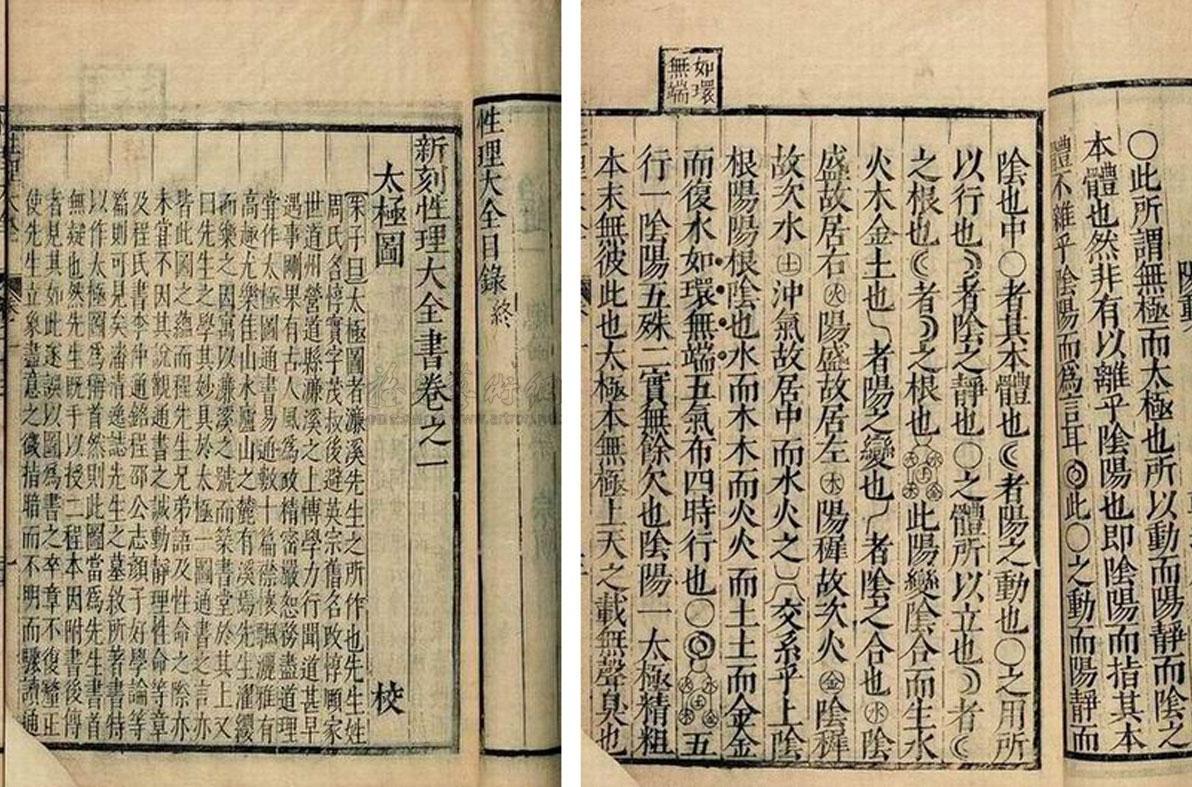 性理大全目錄終
新刻性理大全書卷之一
太極圖 校
朱子曰太極圖者濂溪先生之所作也先生姓
周氏名惇實字茂叔後避英宗舊名改惇頤家
世道州營道縣濂溪之上博學力行聞道甚早
遇事剛果有古人風爲政精密嚴恕務盡道理
嘗作太極圖通書易通數十篇襟懷飄灑雅有
高趣尤樂佳山水廬山之麓有溪焉先生濯纓
而樂之因寓以濂溪之號而築書堂於其上又
曰先生之學其妙具於太極一圖通書之言亦
皆此圖之蘊而程先生兄弟語及性命之際亦
未嘗不因其說觀通書之誠動靜理性命等章
及程氏書李仲通銘程邵公志顏子好學論等
篇則可見矣潘清逸誌先生之墓敘所著書特
以作太極圖爲稱首然則此圖當爲先生書首
無疑也然先生既手以授二程本因附書後傳
者見其如此遂誤以圖爲書之卒章不復釐正
使先生立象盡意之微指暗而不明而驟讀通
性理大全
陽動
○此所謂無極而太極也所以動而陽靜而陰之
本體也然非有以離乎陰陽也即陰陽而指其本
體不雜乎陰陽而爲言耳◎此○之動而陽靜而
陰也中○者其本體也☾者陽之動也○之用所
以行也☽者陰之靜也○之體所以立也☽者☾
之根也☾者☽之根也水火土木金此陽變陰合而生水
火木金土也㇏者陽之變也丿者陰之合也㊌陰
盛故居右㊋陽盛故居左㊍陽穉故次火㊎陰穉
故次水㊏沖氣故居中而水火之乂交系乎上陰
根陽陽根陰也水而木木而火火而土土而金金
而復水如環無端五氣布四時行也○◎水火土木金五
行一陰陽五殊二實無餘欠也陰陽一太極精粗
本末無彼此也太極本無極上天之載無聲臭也
如環
無端